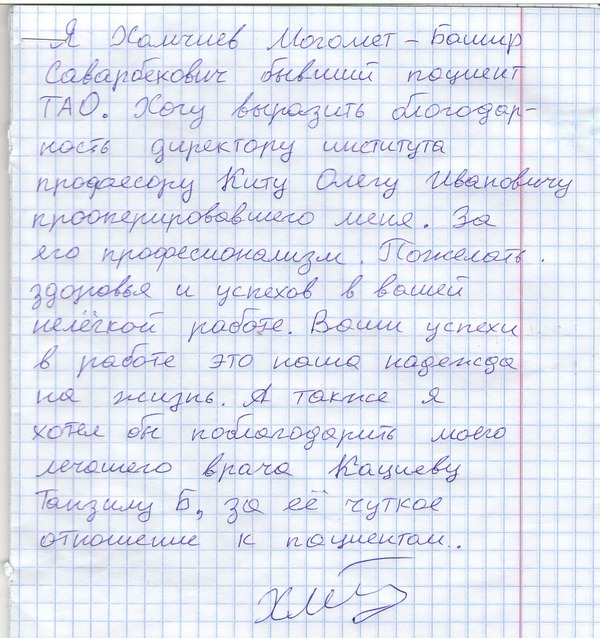 Я Хамчиев Могомет - Башир
Саварбекович бывший пациент
ТАО. Хочу выразить благодар-
ность директору института
профессору Киту Олегу Ивановичу
прооперировавшего меня. За
его професионализм. Пожелать.
здоровья и успехов в вашей
нелёгкой работе. Ваши успехи
в работе это наша надежда
на жизнь. А также я
хотел бы поблагодарить моего
лечашего врача Кациеву
Танзилу Б, за её чуткое
отношение к пациентам..
ХМБ